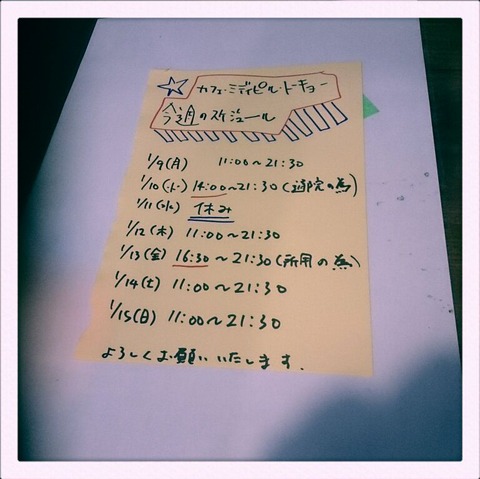 カフェ・ミディピル・トーキョー
今週のスケジュール
1/9(月) 11:00~21:30
1/10(火) 14:00~21:30(通院の為)
1/11(水) 休み
1/12(木) 11:00~21:30
1/13(金) 16:30~21:30(所用の為)
1/14(土) 11:00~21:30
1/15(日) 11:00~21:30
よろしくお願いいたします.